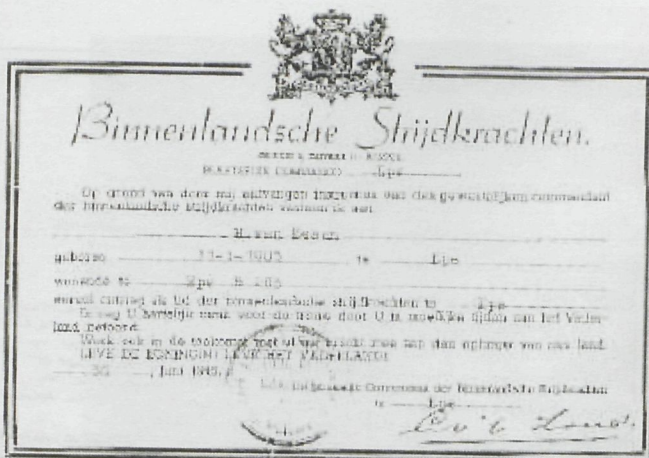 Binnenlandsche Strijdkrachten.
PLAATSELIJK COMMANDO Epe
Op grond van door mij ontvangen instructies van den gewestelijken commandant
der binnenlandsche strijdkrachten verleen ik aan
H. van Essen
geboren 1903 te Epe
wonende te Epe B 203
eervol ontslag als lid der binnenlandsche strijdkrachten te Epe
Ik zeg U hartelijk dank voor de trouw door U in moeilijke tijden aan het Vader-
land betoond.
Werk ook in de toekomst met al uw kracht mee aan den opbouw van ons land.
LEVE DE KONINGIN! LEVE HET VADERLAND!
30 Juni 1945.
Commandant der Binnenlandsche Strijdkrachten
te Epe